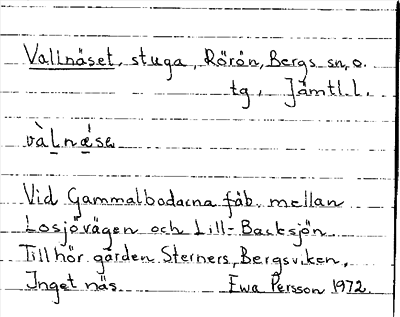 Vallnäset, stuga, Rörön, Bergs sn, o.
tg, Jämtl. l.
vàḷnǽ̣se
Vid Gammalbodarna fäb. mellan
Losjövägen och Lill-Backsjön.
Tillhör gården Sterners, Bergsviken.
Inget näs. Ewa Persson 1972.